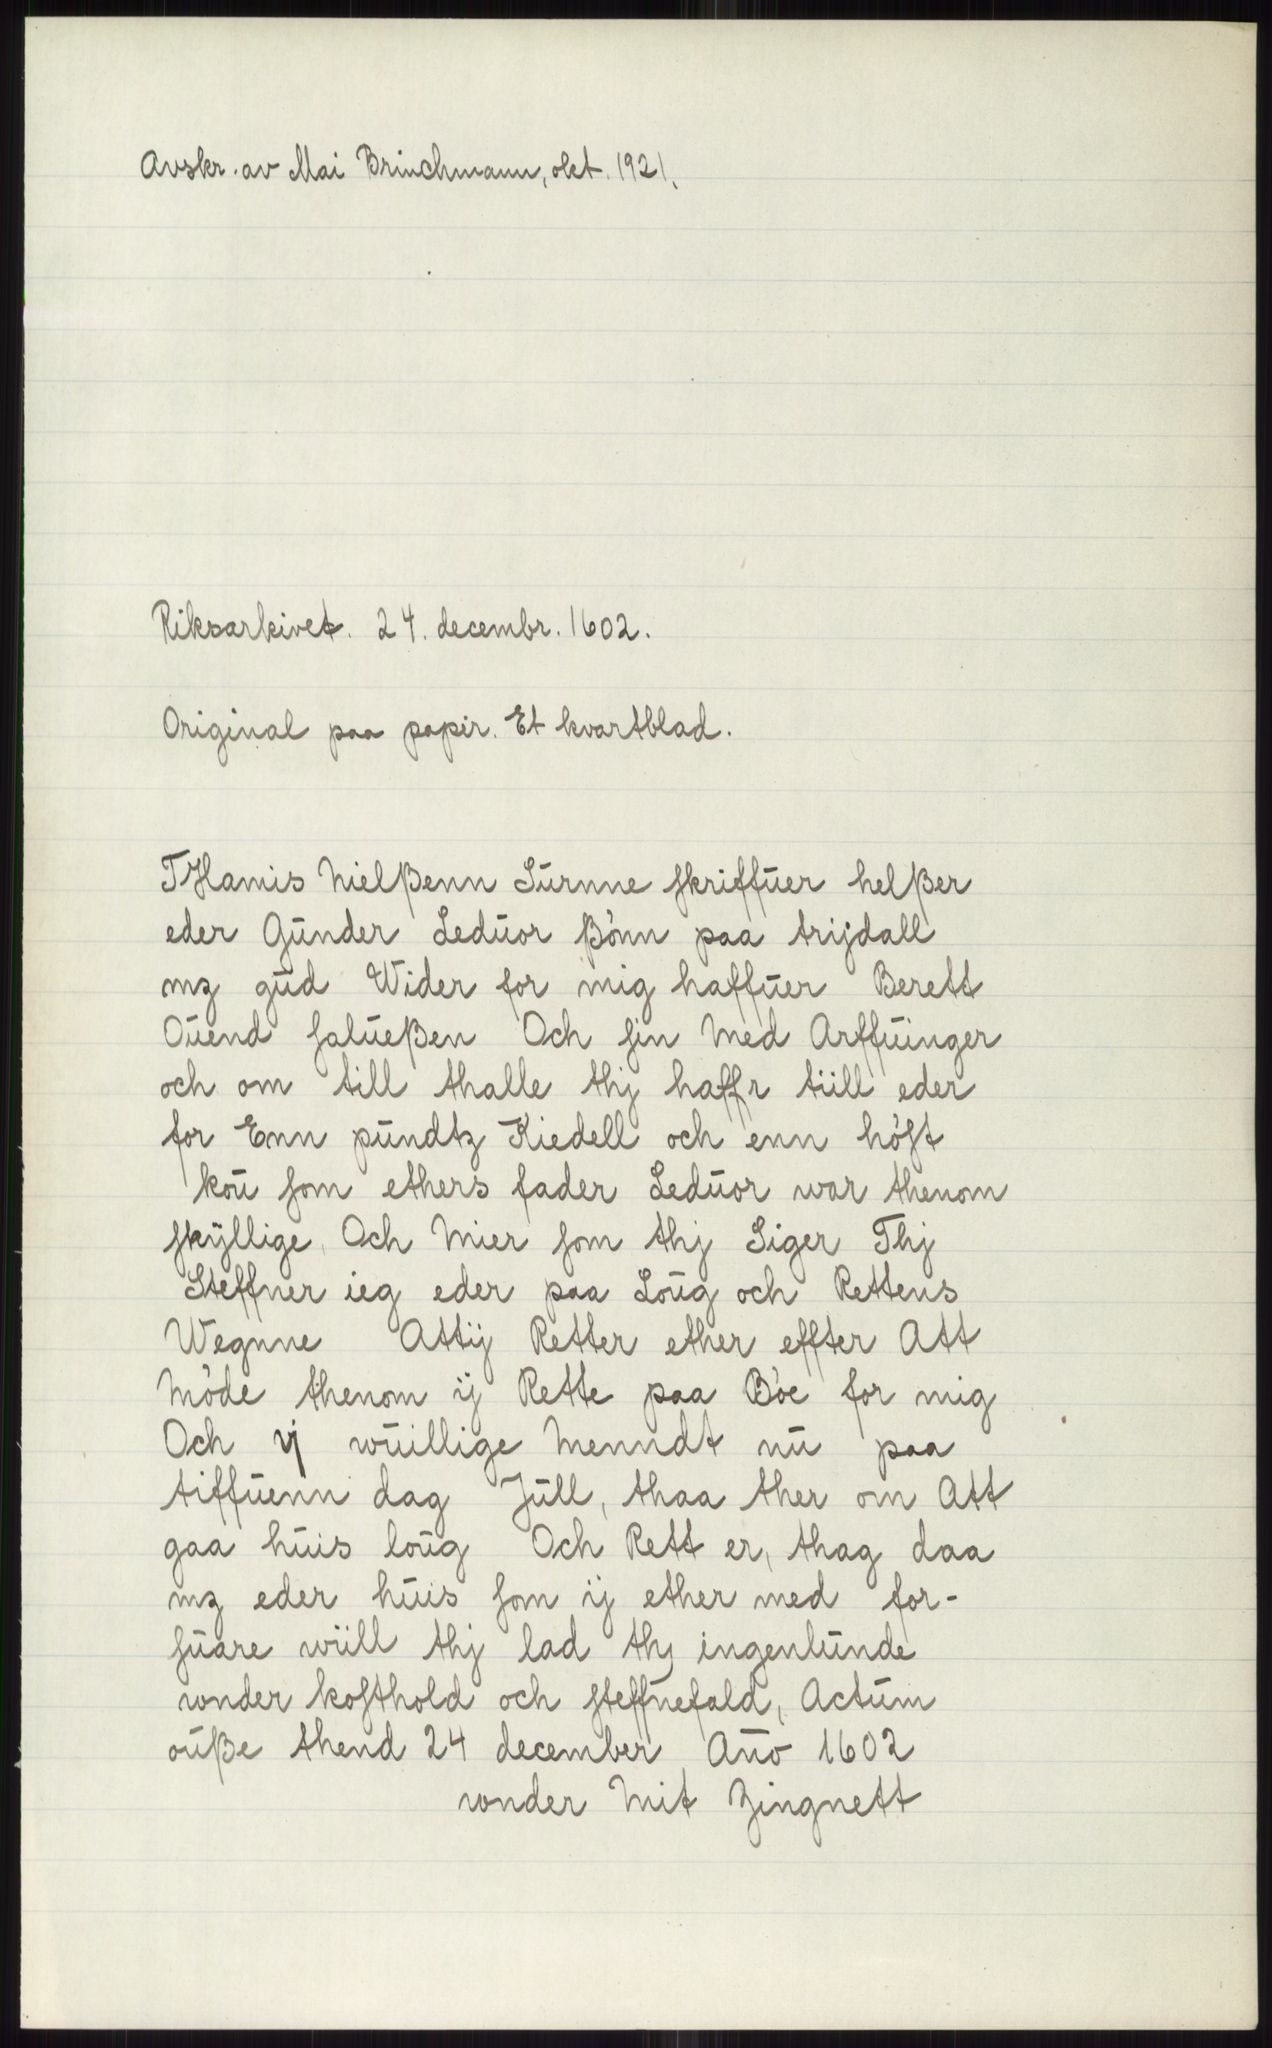 Avskr. av Mai Brinchmann, okt. 1921.
Riksarkivet. 24. decembr. 1602.
Original paa papir. Et kvartblad.
THamis Nielßenn Surnne skriffuer helßer
eder Gunder Leduor ßönn paa trijdall
mz gud Wider for mig haffuer Berett
Ouend salueßen Och sin Med Arffuinger
och om till thalle thj haffr tiill eder
for Enn pundtz Kiedell och enn höst
kou som ethers fader Leduor war thenom
skÿllige, Och Mier som thj Siger Thj
Steffner ieg eder paa Loug och Rettens
Wegnne Attij Retter ether effter Att
Möde thenom ij Rette paa Böe for mig
Och vj wuillige Menndt nu paa
tiffuenn dag Jull, thaa ther om Att
gaa huis loug Och Rett er, thag daa
mz eder huis som ij ether med for-
suare wiill thj lad thj ingenlunde
wnder kosthold och steffnefald, Actum
ouße thend 24 december Año 1602
wnder Mit Zingnett